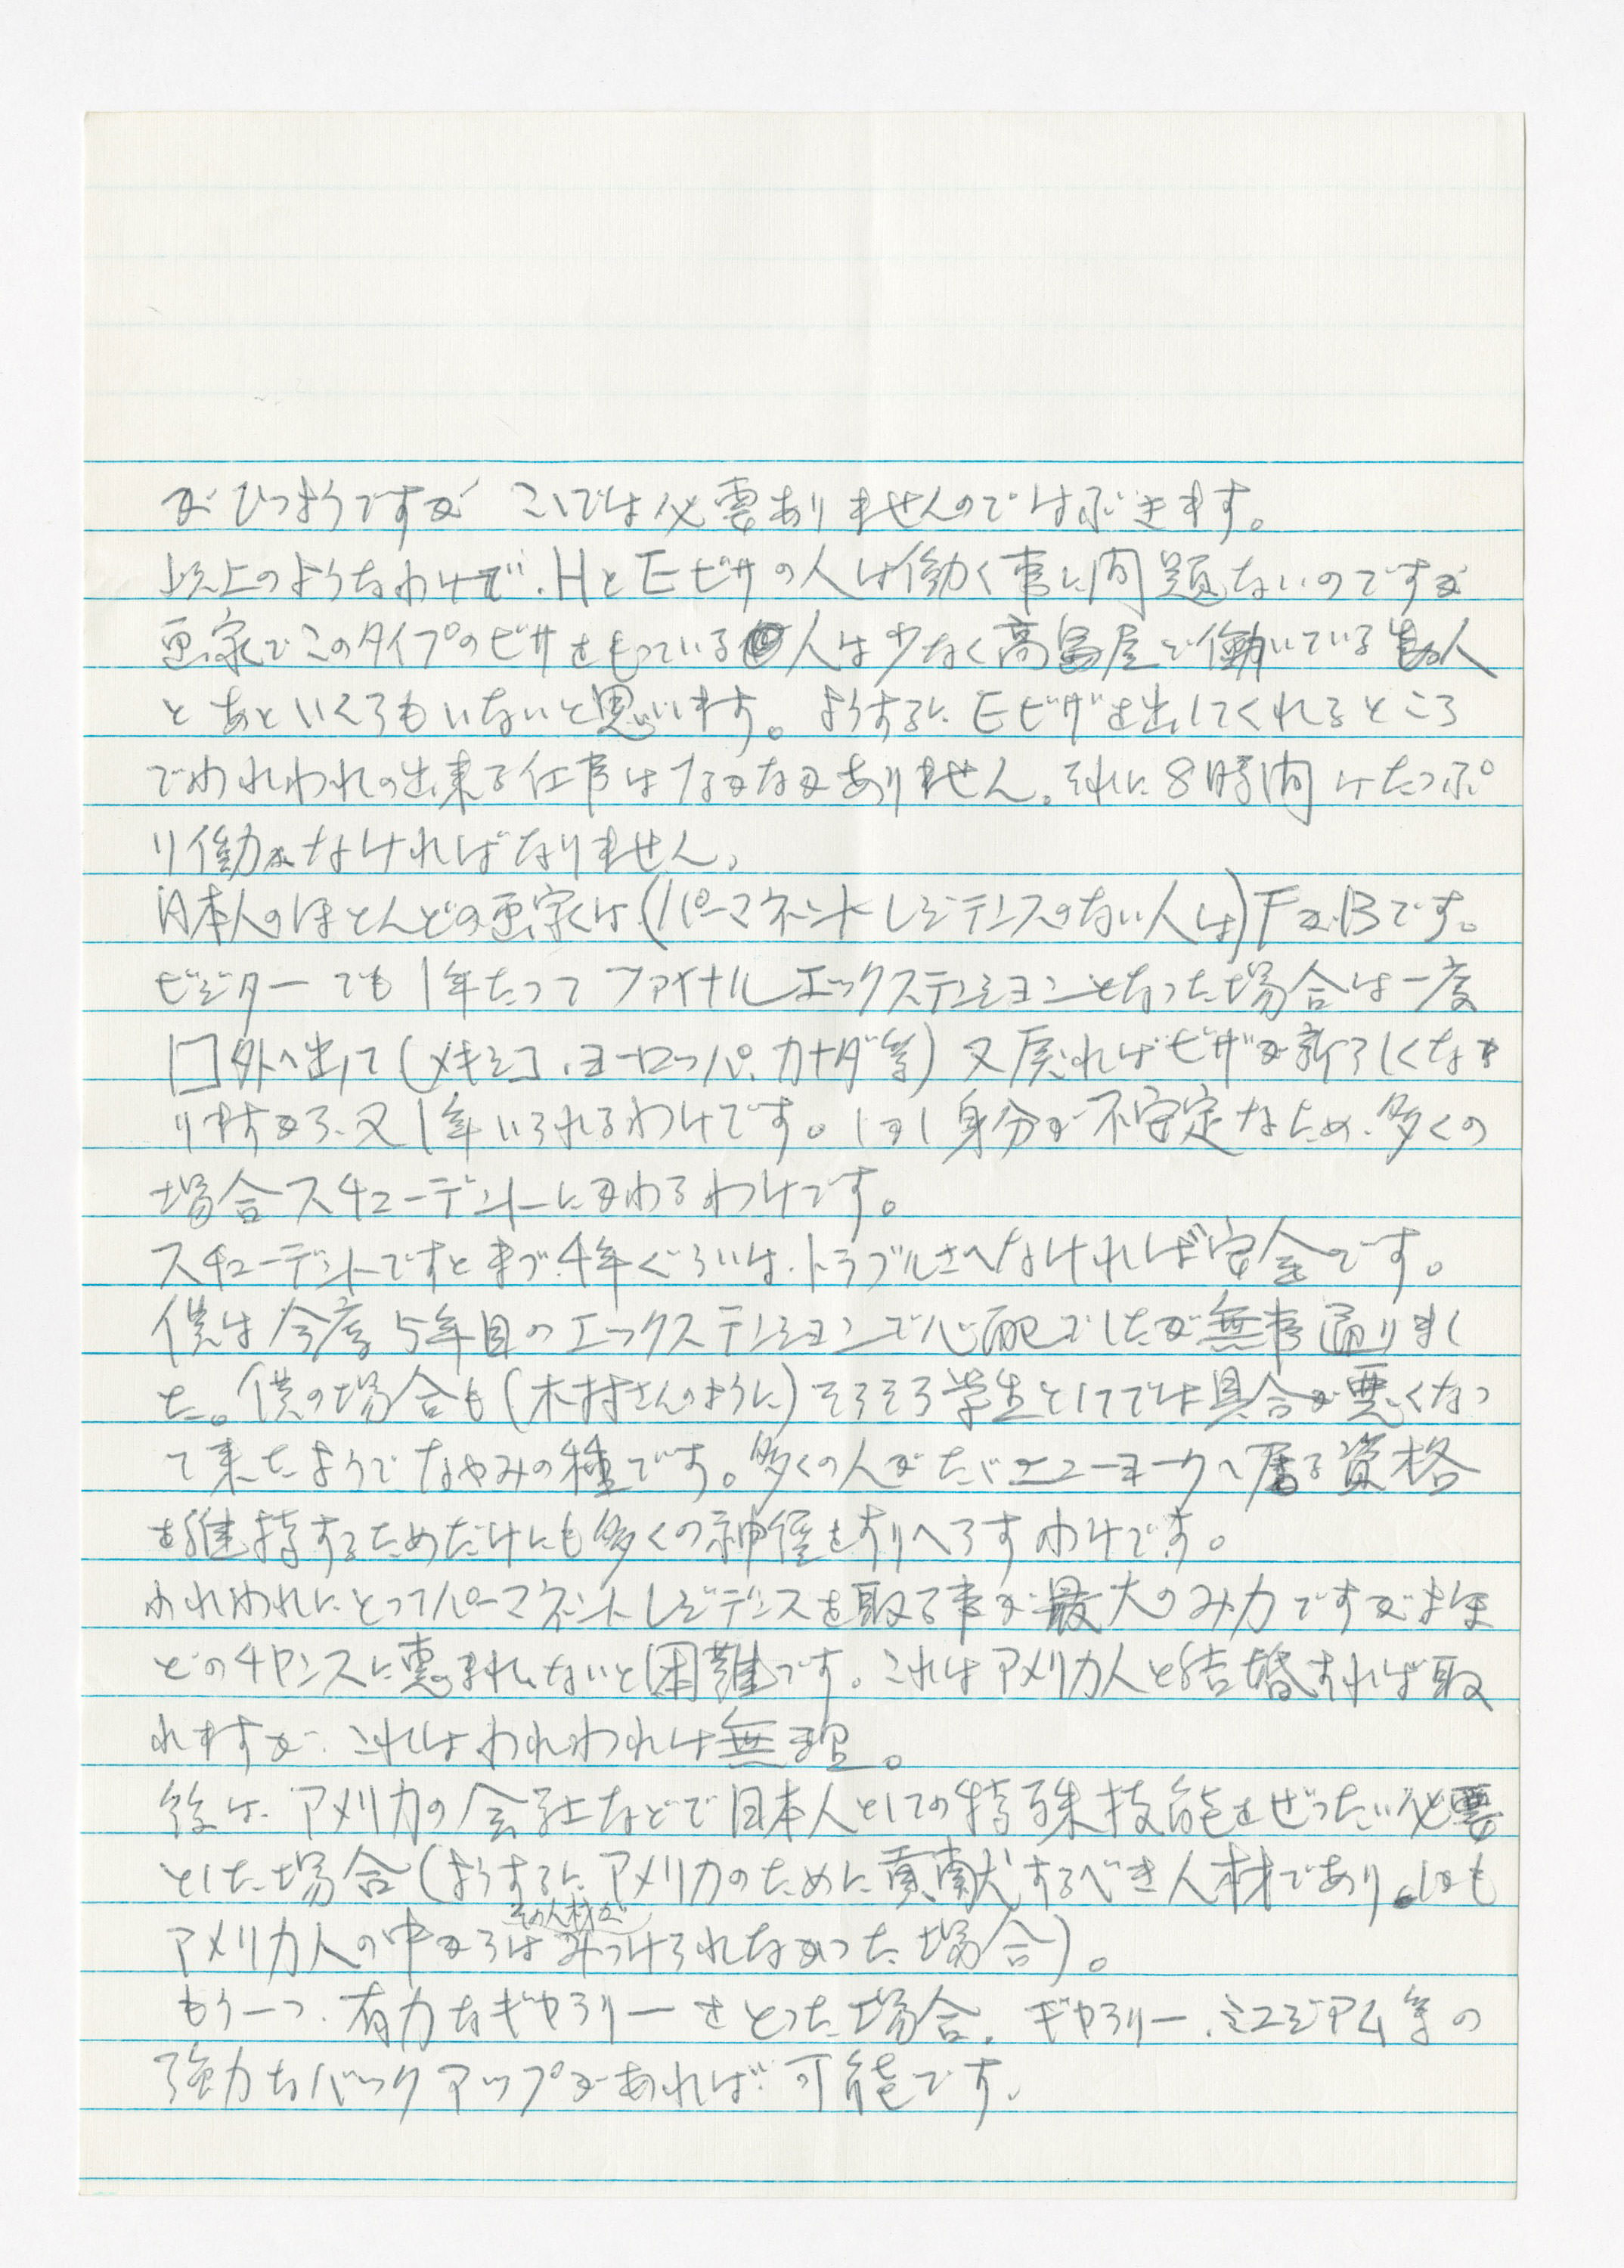 がひつようですが こゝでは必要ありませんのではぶきます。
以上のようなわけで、HとEビザの人は働く事に問題ないのですが
画家でこのタイプのビザをもっている人は少なく高島屋で働いている人
とあといくらもいないと思います。ようするに Eビザを出してくれるところ
でわれわれの出来る仕事はなかなかありません。それに8時間はたっぷ
り働かなければなりません。
日本人のほとんどの画家は(パーマネントレジデンスのない人は)FかBです。
ビジターでも1年たってファイナルエックステンションとなった場合は一度
国外へ出て(メキシコ、ヨーロッパ、カナダ等)又戻ればビザが新らしくな
りますから、又1年いられるわけです。しかし身分が不安定なため、多くの
場合スチューデントにかわるわけです。
スチューデントですとまづ4年ぐらいは、トラブルさへなければ安全です。
僕は今度5年目のエックステンションで心配でしたが無事通りまし
た。僕の場合も(木村さんのように)そろそろ学生としてでは具合が悪くなっ
て来たようでなやみの種です。多くの人がたゞニューヨークへ居る資格
を維持するためだけにも多くの神経をすりへらすわけです。
われわれにとってパーマネントレジデンスを取る事が最大のみ力ですがよほ
どのチャンスに恵まれないと困難です。これはアメリカ人と結婚すれば取
れますが、これはわれわれは無理。
後は、アメリカの会社などで日本人としての特殊技能をぜったい必要
とした場合(ようするに、アメリカのために貢献するべき人材であり、しかも
アメリカ人の中からはその人材がみつけられなかった場合)。
もう一つ、有力なギャラリーをとった場合、ギャラリー、ミュジアム等の
強力なバックアップがあれば可能です。